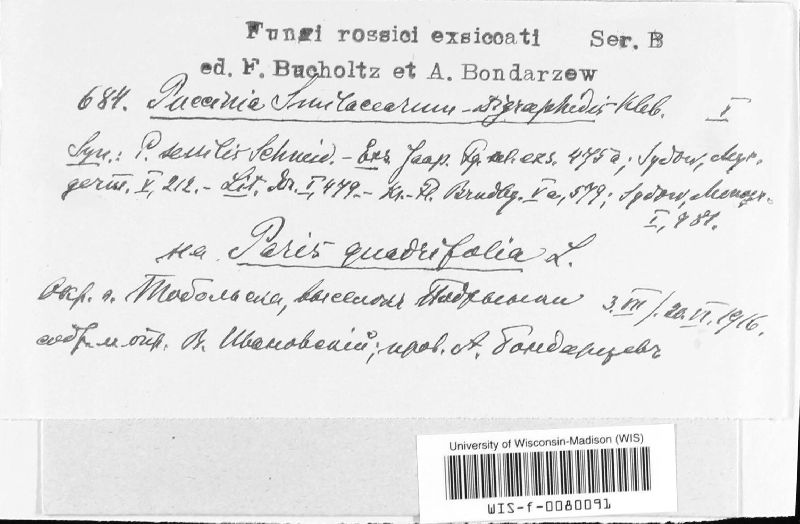 Fungi rossici exsiccati Ser. B
ed. F. Bucholtz et A. Bondarzew
684. Puccinia Smilacearum-digraphidis Kleb. I
Syn.: P. sessilis Schneid. - Exs. Jaap. Fg. sel. exs. 475a; Sydow, Myc.
germ. V, 212. - Lit. I, 479. - Kr.-Fl. Brndbg. Va, 579; Sydow, Monogr.
I, 781.
на Paris quadrifolia L.
Окр. г. Тобольска, выселокъ 3. III/20. VI. 1916.
собр. и опр. В. Ивановскій; пров. А. Бондарцевъ
University of Wisconsin-Madison (WIS)
WIS-f-0080091